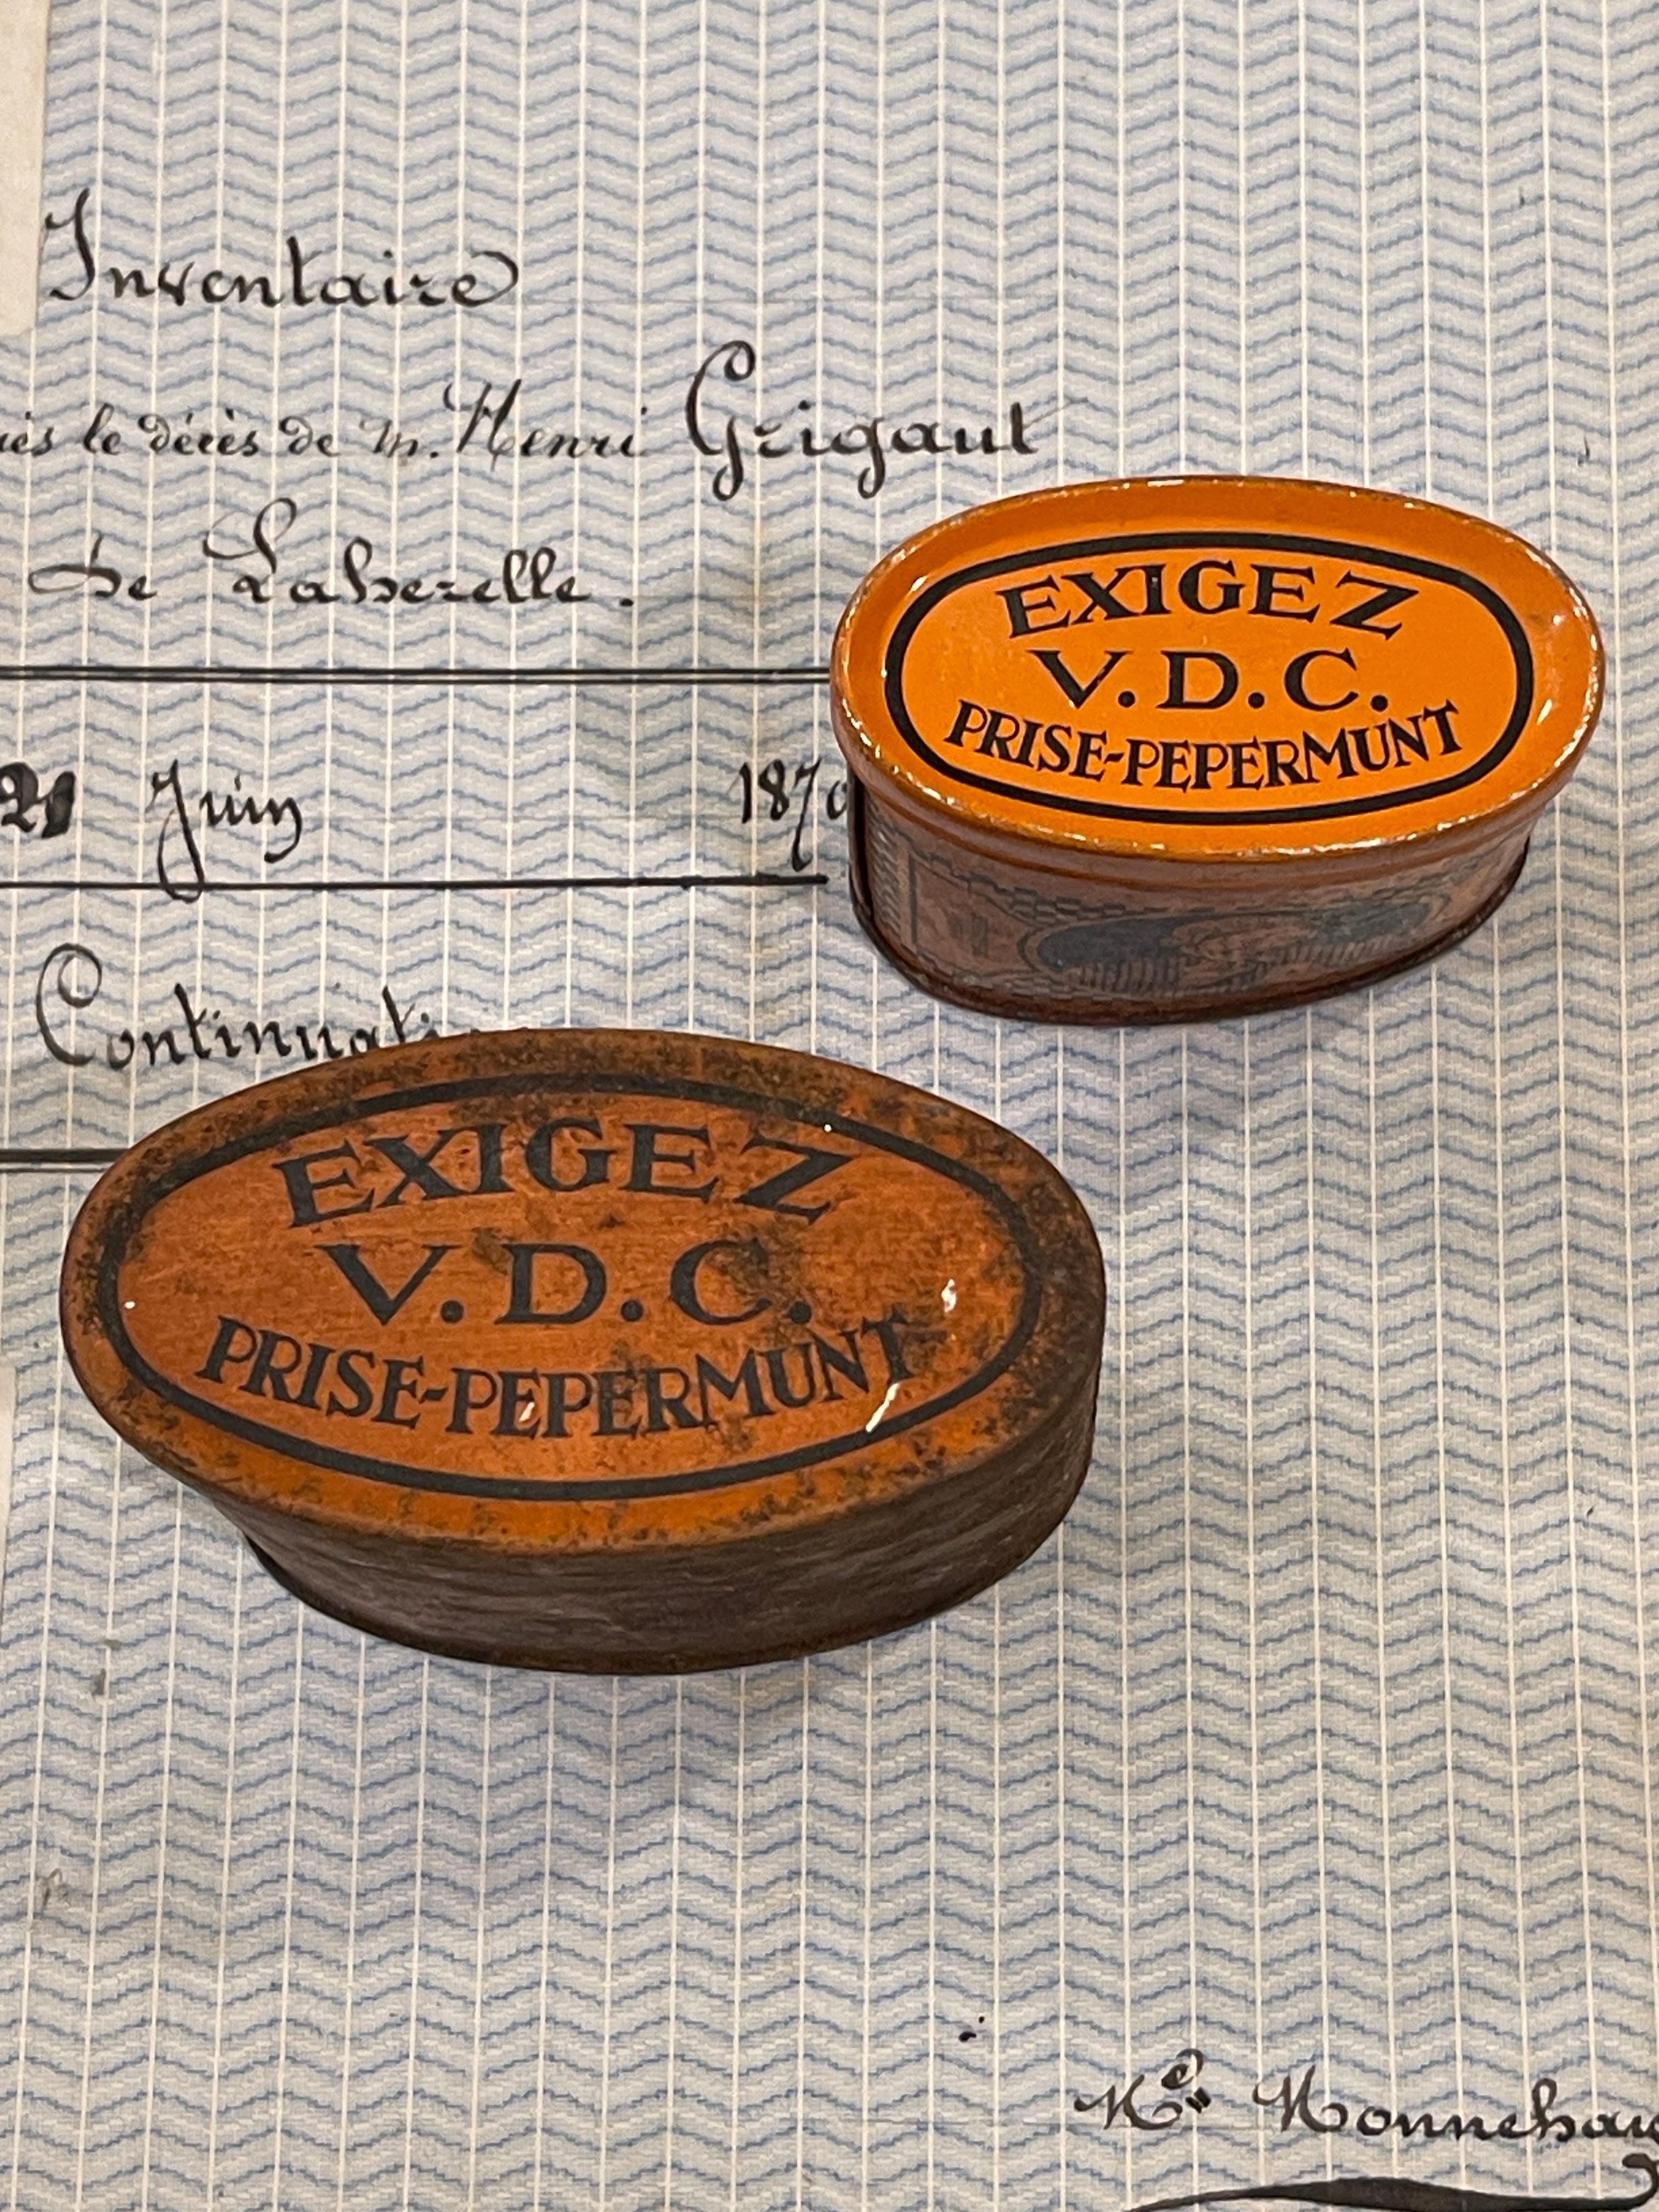 Inventaire
le décès de M. Henri Grigaut
De Laherelle.
21 Juin 187
Continuati
EXIGEZ
V.D.C.
PRISE-PEPERMUNT
EXIGEZ
V.D.C.
PRISE-PEPERMUNT
Me